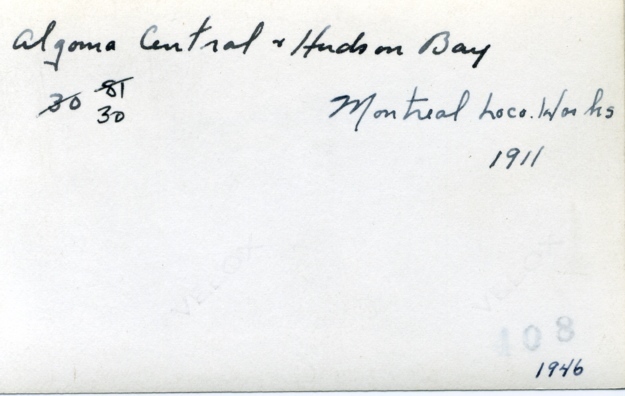 Algoma Central & Hudson Bay
30 81
30
Montreal Loco. Works
1911
VELOX
VELOX
108
1946